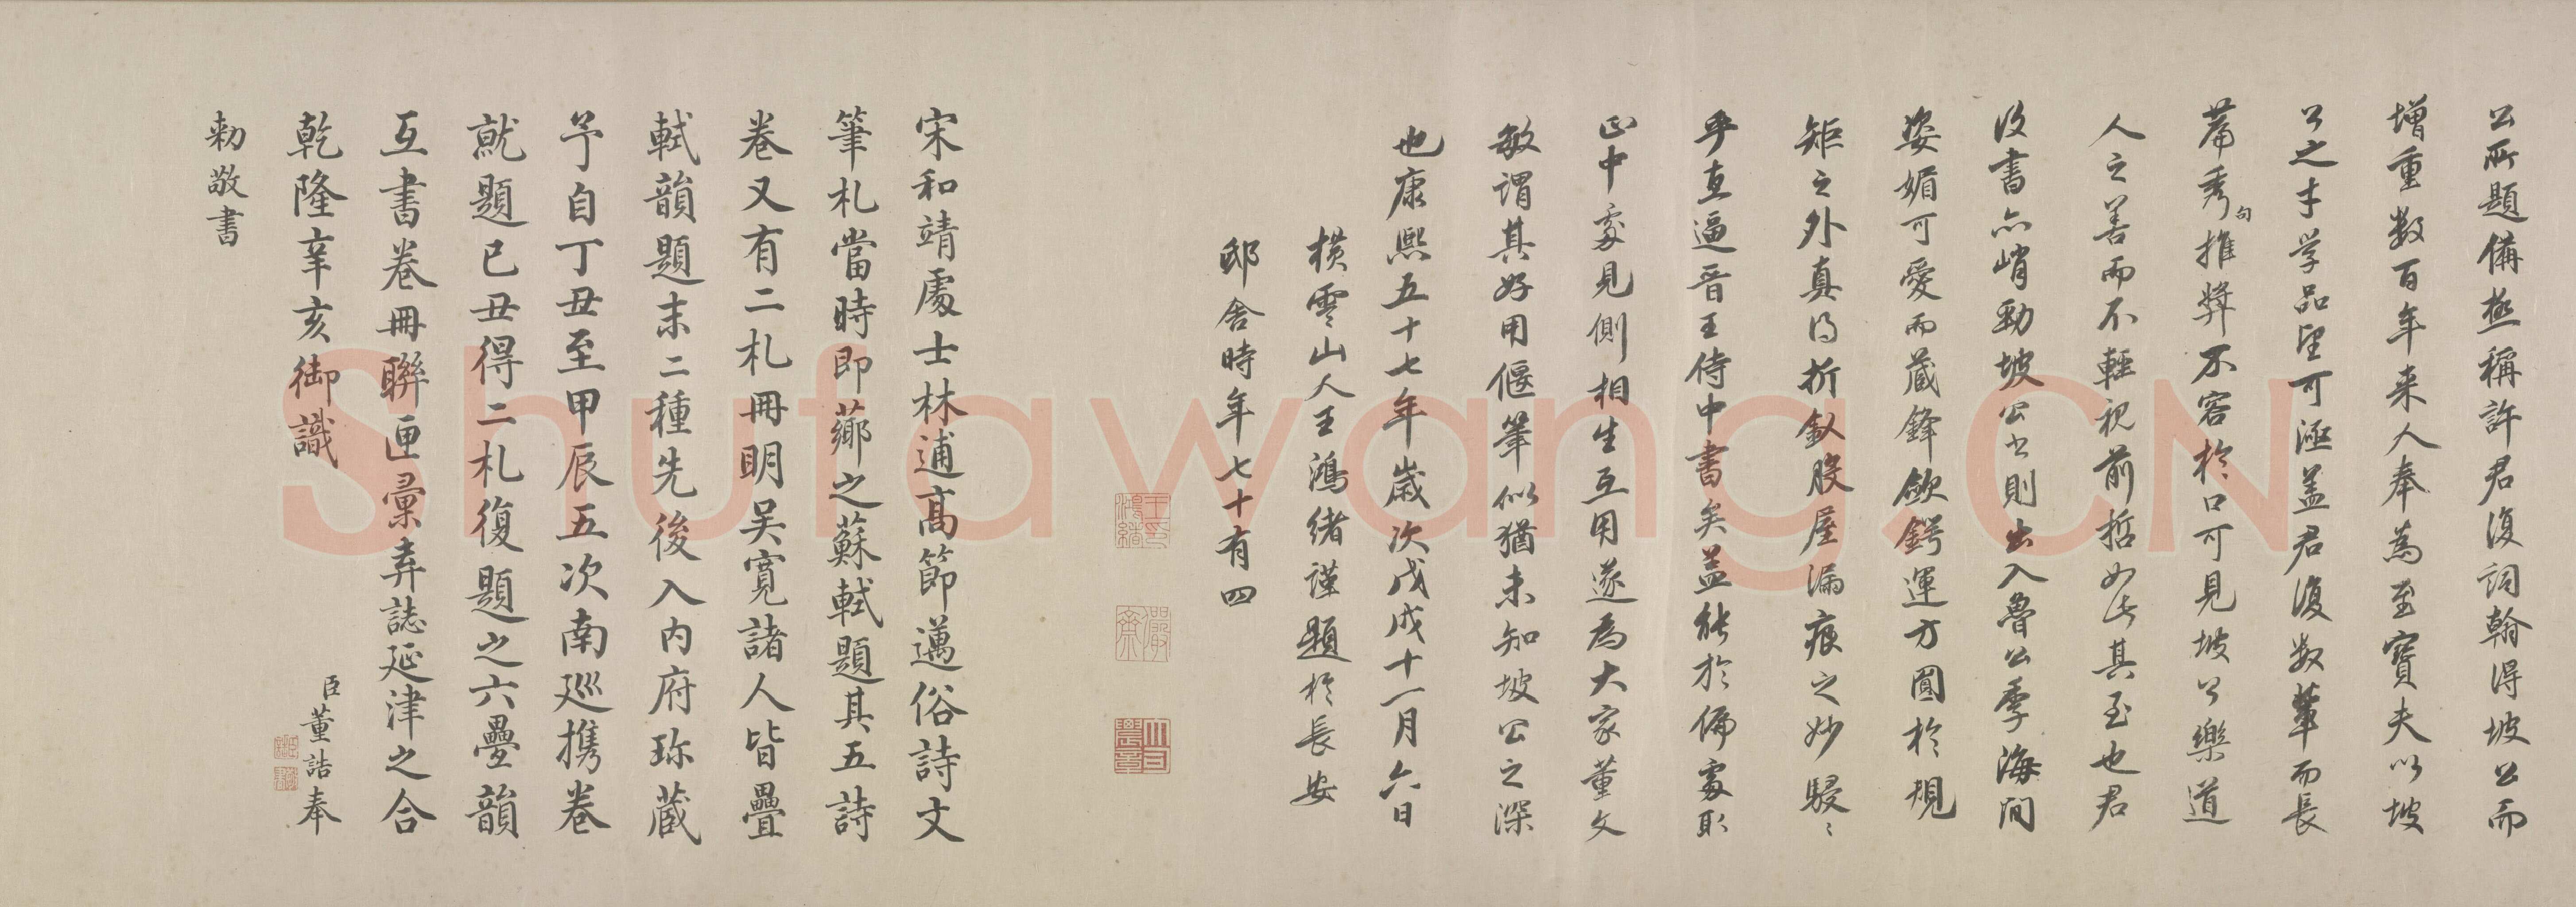 公所題備極稱許君復詞翰得坡公而
增重数百年来人奉為至寶夫以坡
公之才学品望可凌盖君復数輩而長
篇秀句推奬不容於口可見坡公樂道
人之善而不輕視前哲如此其至也君
復書亦峭勁坡公书則出入魯公季海間
姿媚可愛而蔵鋒斂鍔運方圓於規
矩之外真得折釵股屋漏痕之妙駸〻
乎直逼晋王侍中書矣盖能於偏處取
正中處見側相生互用遂為大家董文
敏謂其好用偃筆似猶未知坡公之深
也康熙五十七年歳次戊戌十一月六日
横雲山人王鴻緒謹題於長安
邸舍時年七十有四
王印鴻緒
儼齋
宋和靖處士林逋高節邁俗詩文
筆札當時即薌之蘇軾題其五詩
卷又有二札冊明吴寛諸人皆疊
軾韻題末二種先後入内府珎蔵
予自丁丑至甲辰五次南巡携卷
就題已丑得二札復題之六疊韻
互書卷冊聯匣彙弆誌延津之合
乾隆辛亥御識
臣董誥奉
勅敬書
Shufawang.CN